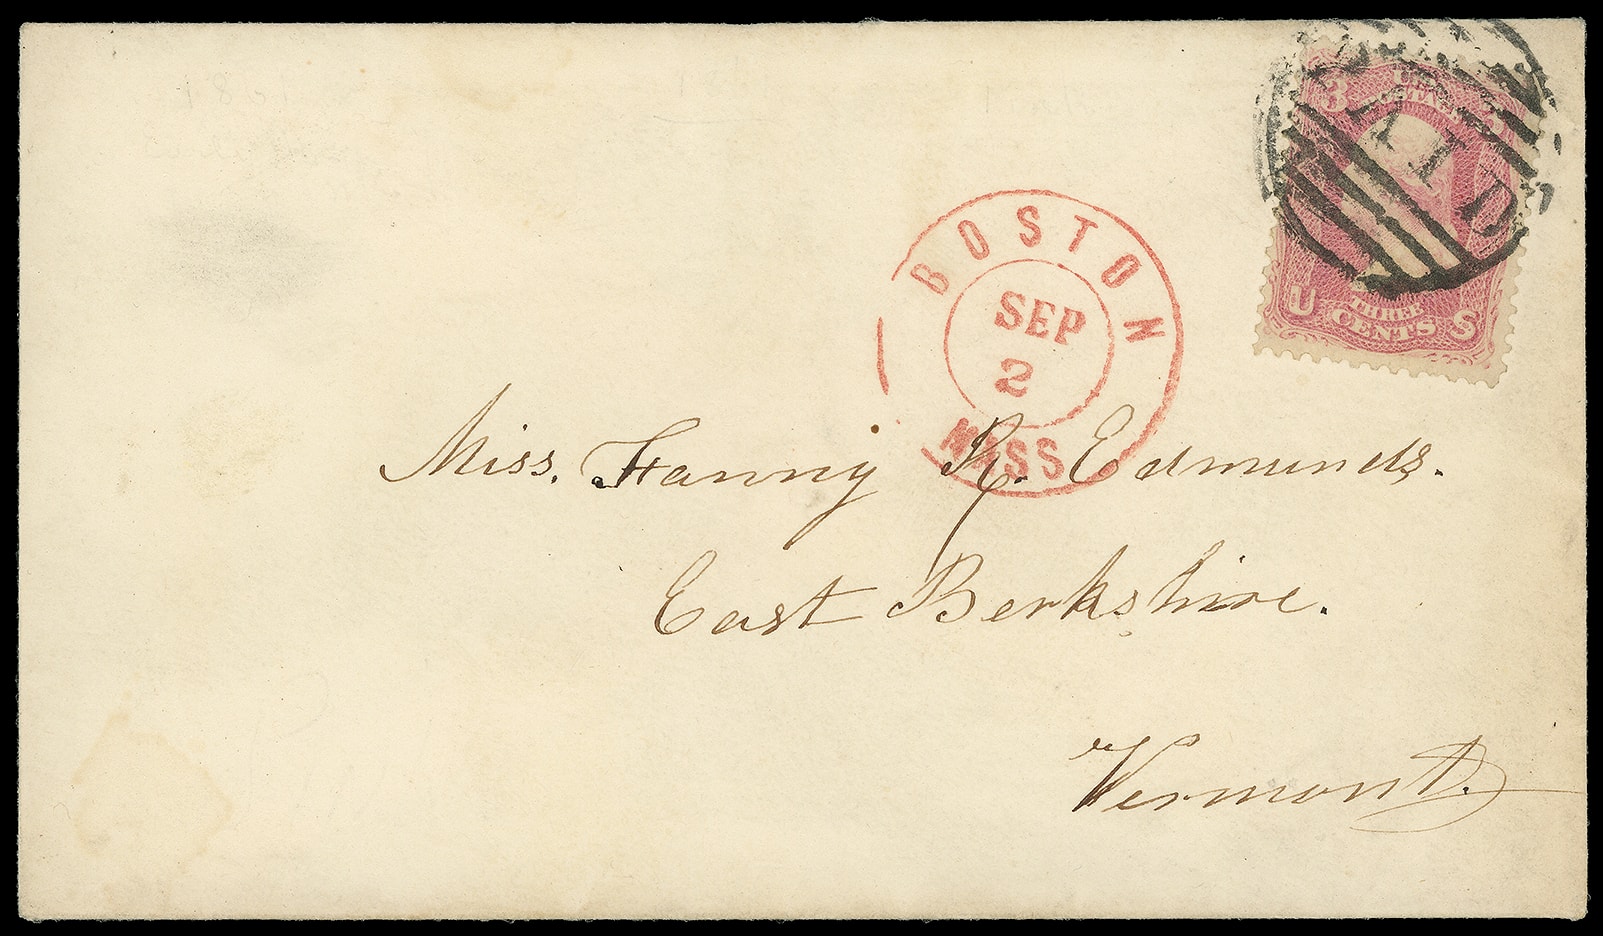 3
U.S.
POSTAGE
PAID
BOSTON
SEP
2
MASS
U THREE CENTS S
Miss. Fanny R. Edmunds.
East Berkshire.
Vermont.